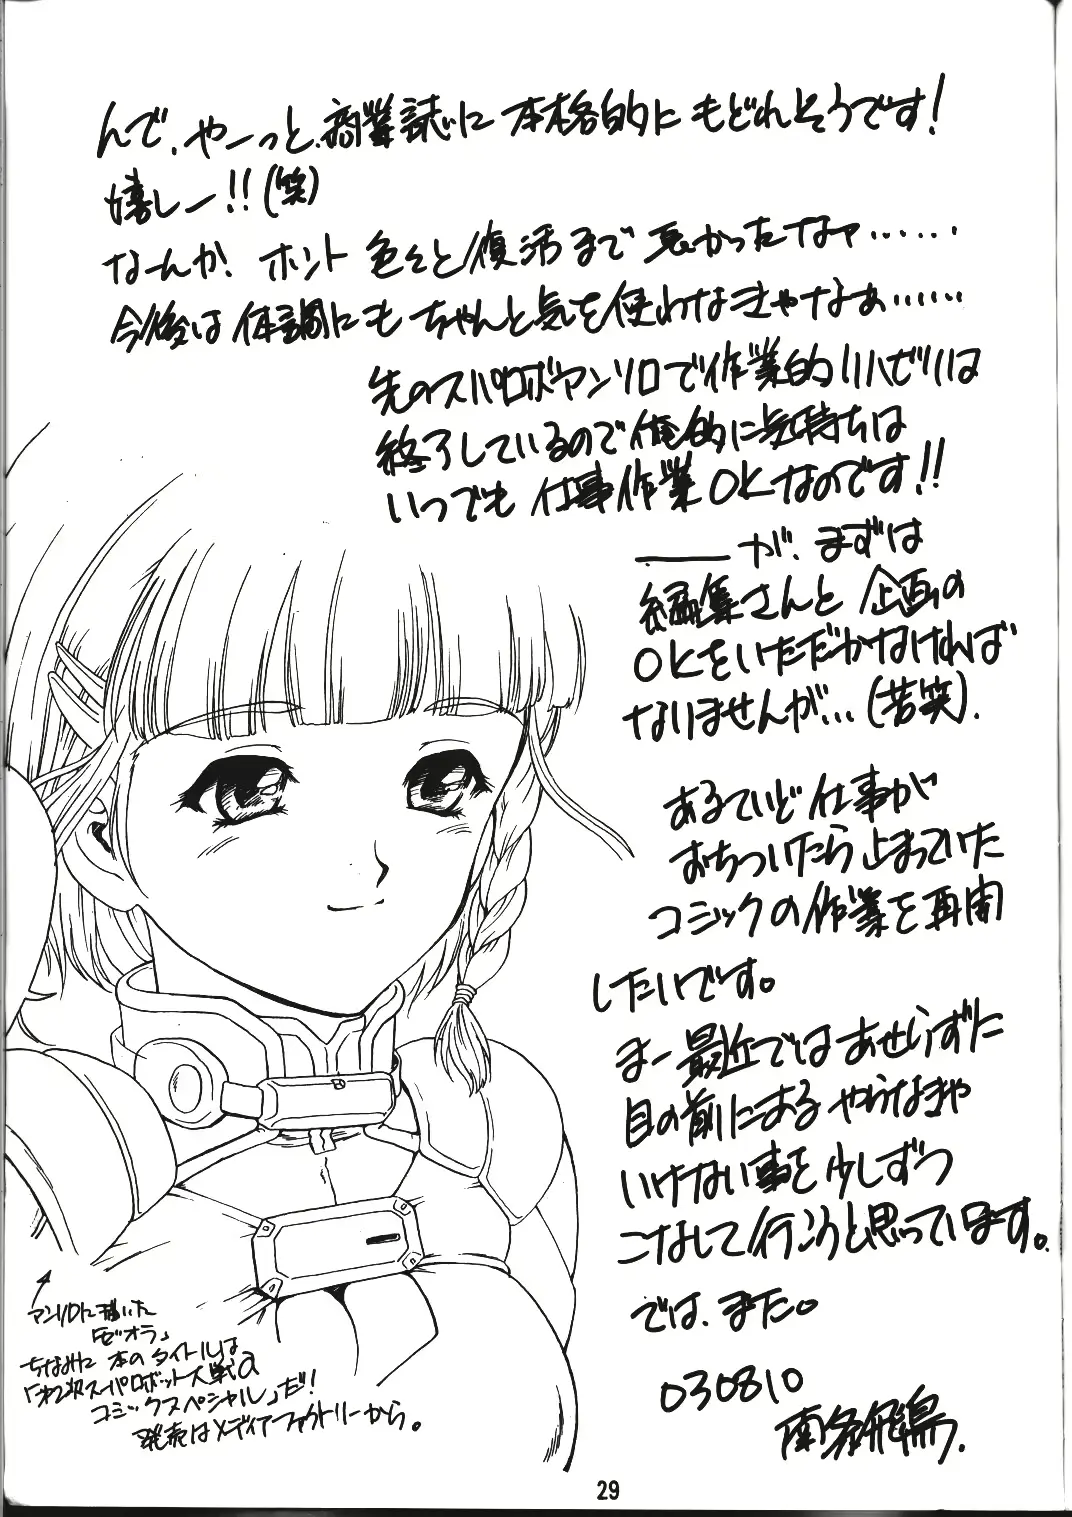 んで、やーっと、商業誌に本格的にもどれそうです!
嬉しー!!(笑)
なんか、ホント色々と復活まで長かったなァ……
今後は体調にもちゃんと気を使わなきゃなぁ……
先のスパロボアンソロで作業的リハビリは
終了しているので俺的に気持ちは
いつでも仕事作業OKなのです!!
――が、まずは
編集さんと企画の
OKをいただかなければ
なりませんが…(苦笑).
あるていど仕事が
おちついたら止まっていた
コミックの作業を再開
したいです。
まー最近ではあせらずに
目の前にあるやらなきゃ
いけない事を少しずつ
こなして行こうと思っています。
では、また。
030810
南条飛鳥.
アンソロに描いた
「ゼオラ」
ちなみに本のタイトルは
「第2次スーパーロボット大戦α
コミックスペシャル」だ!
発売はメディアファクトリーから。
29